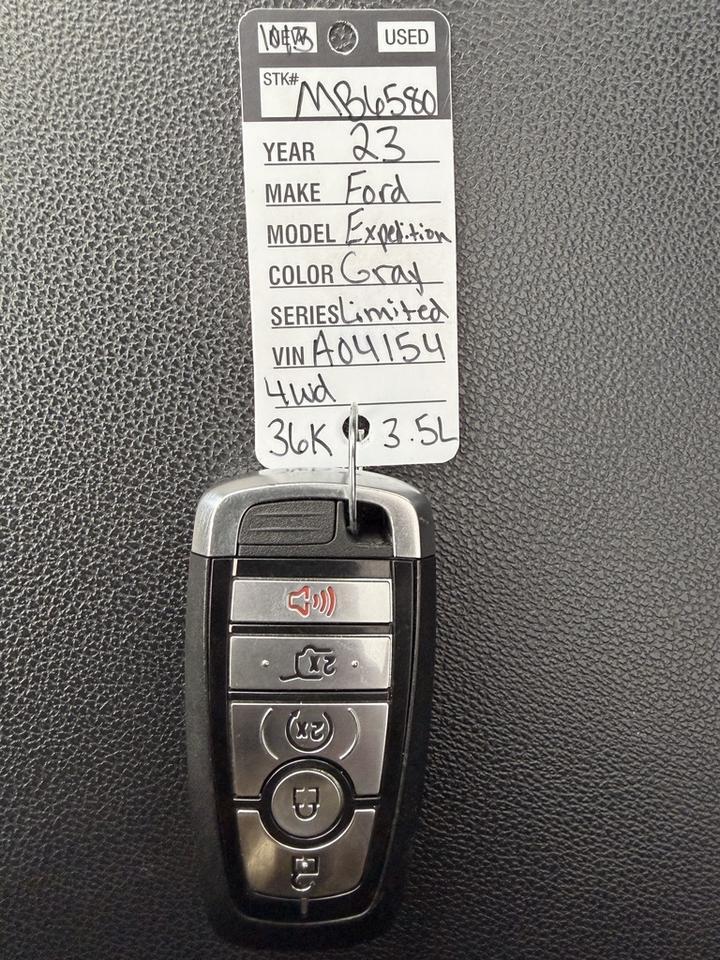 NEW USED
STK# MB6580
YEAR 23
MAKE Ford
MODEL Expedition
COLOR Gray
SERIES Limited
VIN A04154
4wd
36K 3.5L
2x
2x